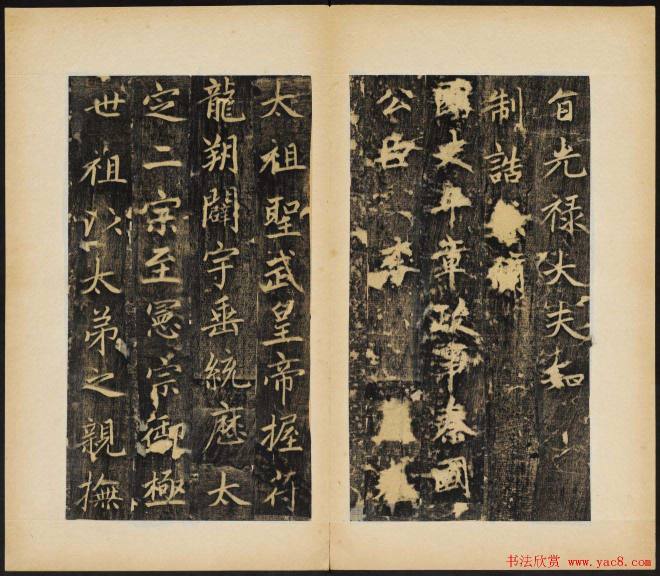 光禄大夫知
制誥
國史平章政事秦國
公臣李
太祖聖武皇帝握符
龍朔闢宇垂統歴太
定二宗至憲宗御極
世祖以太弟之親撫
书法欣赏 www.yac8.com